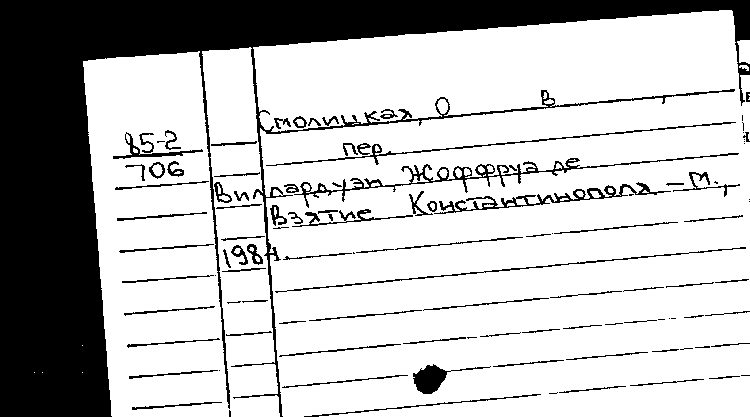 Смолицкая, О В ,
85-2
пер.
706
Виллардуэн, Жоффруа де
Взятие Константинополя - М.,
1984.